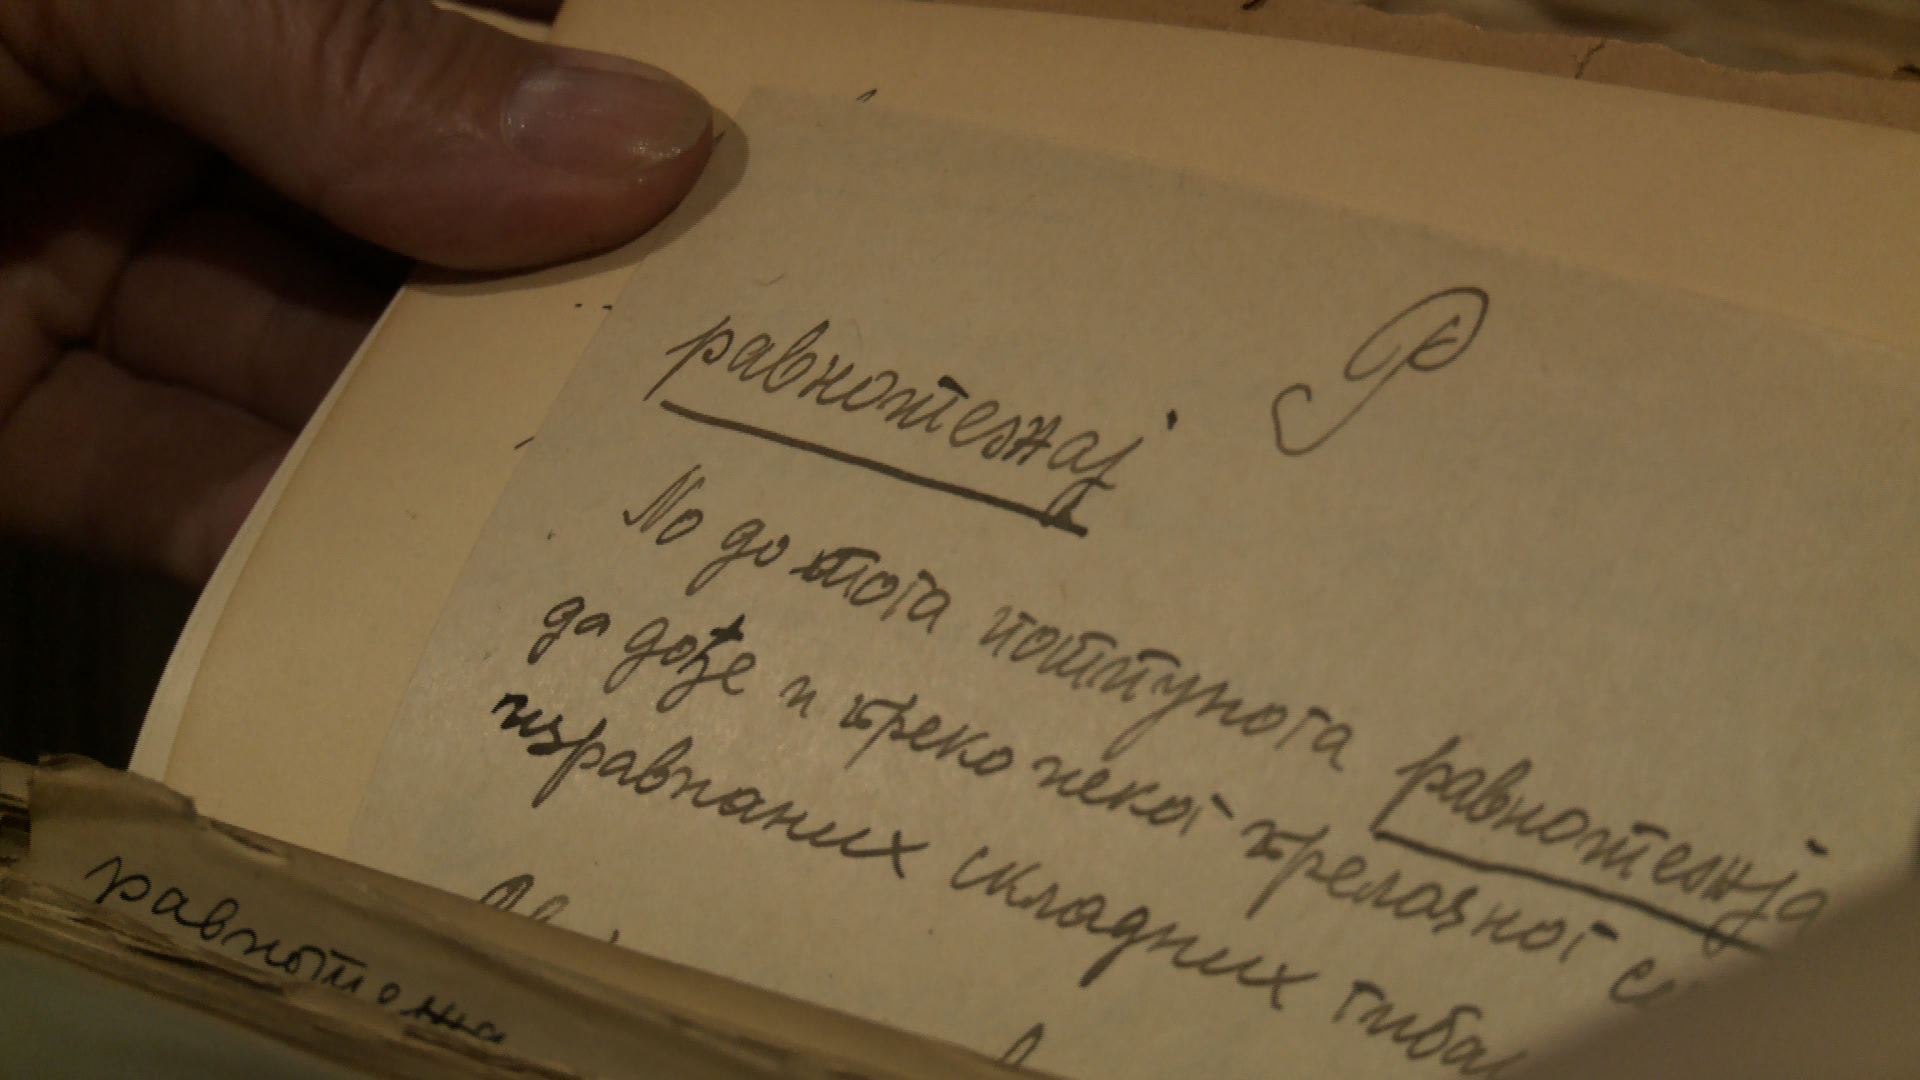 равнотежај
No до тога потпунога равнотежја
да дође и преко неког прелазног
изравнаних складних гиба
равнотежа